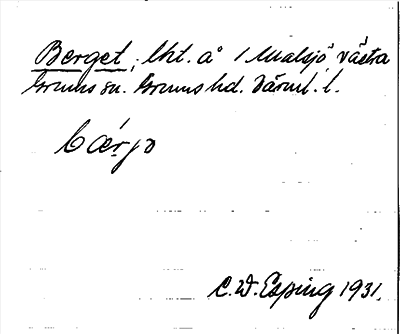 Berget, lht. å 1 Malsjö västra
Grums sn. Grums hd. Värml. l.
bærjə
C.W. Esping 1931.